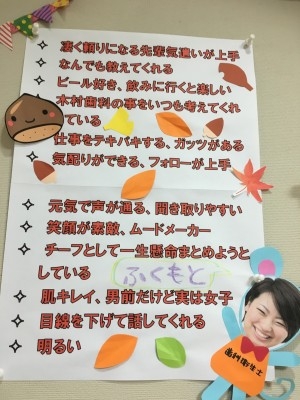 凄く頼りになる先輩気遣いが上手
なんでも教えてくれる
ビール好き、飲みに行くと楽しい
木村歯科の事をいつも考えてくれ
ている
仕事をテキパキする、ガッツがある
気配りができる、フォローが上手
元気で声が通る、聞き取りやすい
笑顔が素敵、ムードメーカー
チーフとして一生懸命まとめようと
している
ふくもと
肌キレイ、男前だけど実は女子
目線を下げて話してくれる
明るい
歯科衛生士